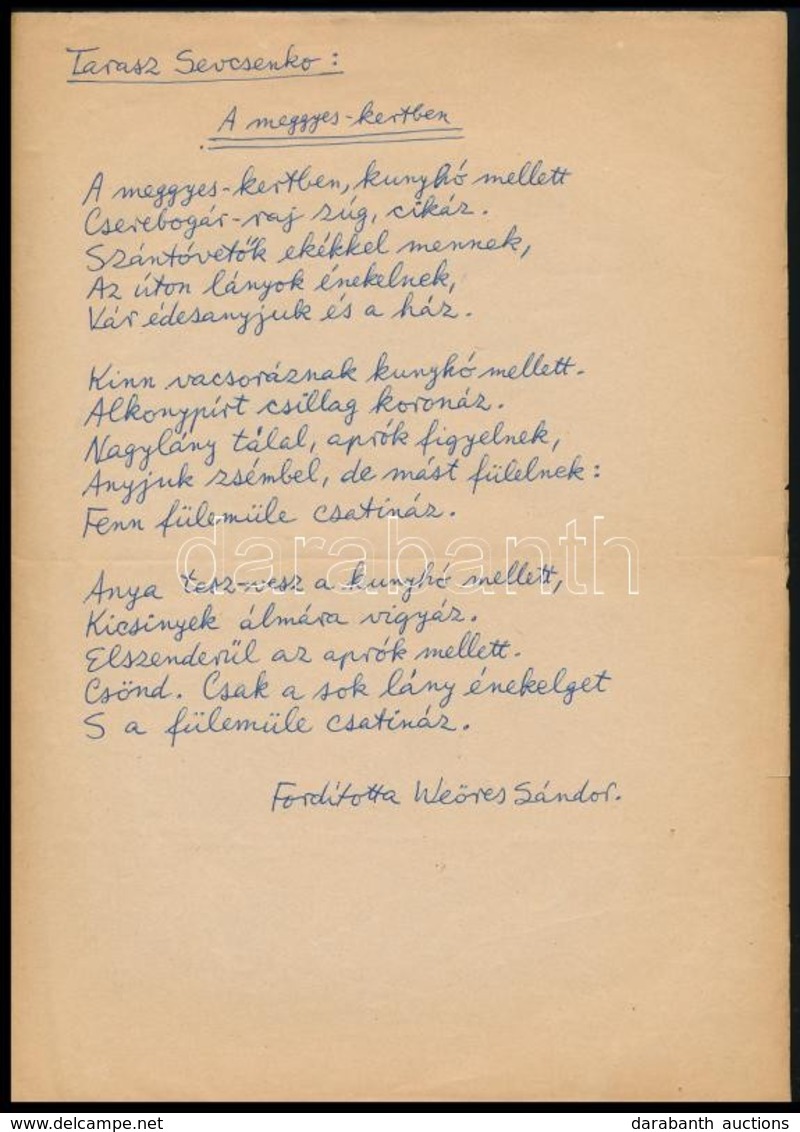 Tarasz Sevcsenko:
A meggyes-kertben
A meggyes-kertben, kunyhó mellett
Cserebogár-raj zúg, cikáz.
Szántóvetők ekékkel mennek,
Az úton lányok énekelnek,
Vár édesanyjuk és a ház.
Kinn vacsoráznak kunyhó mellett.
Alkonypírt csillag koronáz.
Nagylány tálal, aprók figyelnek,
Anyjuk zsémbel, de mást fülelnek:
Fenn fülemüle csatináz.
darabanth
Anya tesz-vesz a kunyhó mellett,
Kicsinyek álmára vigyáz.
Elszenderül az aprók mellett.
Csönd. Csak a sok lány énekelget
S a fülemüle csatináz.
Fordította Weöres Sándor.
www.delcampe.net
darabanth auctions